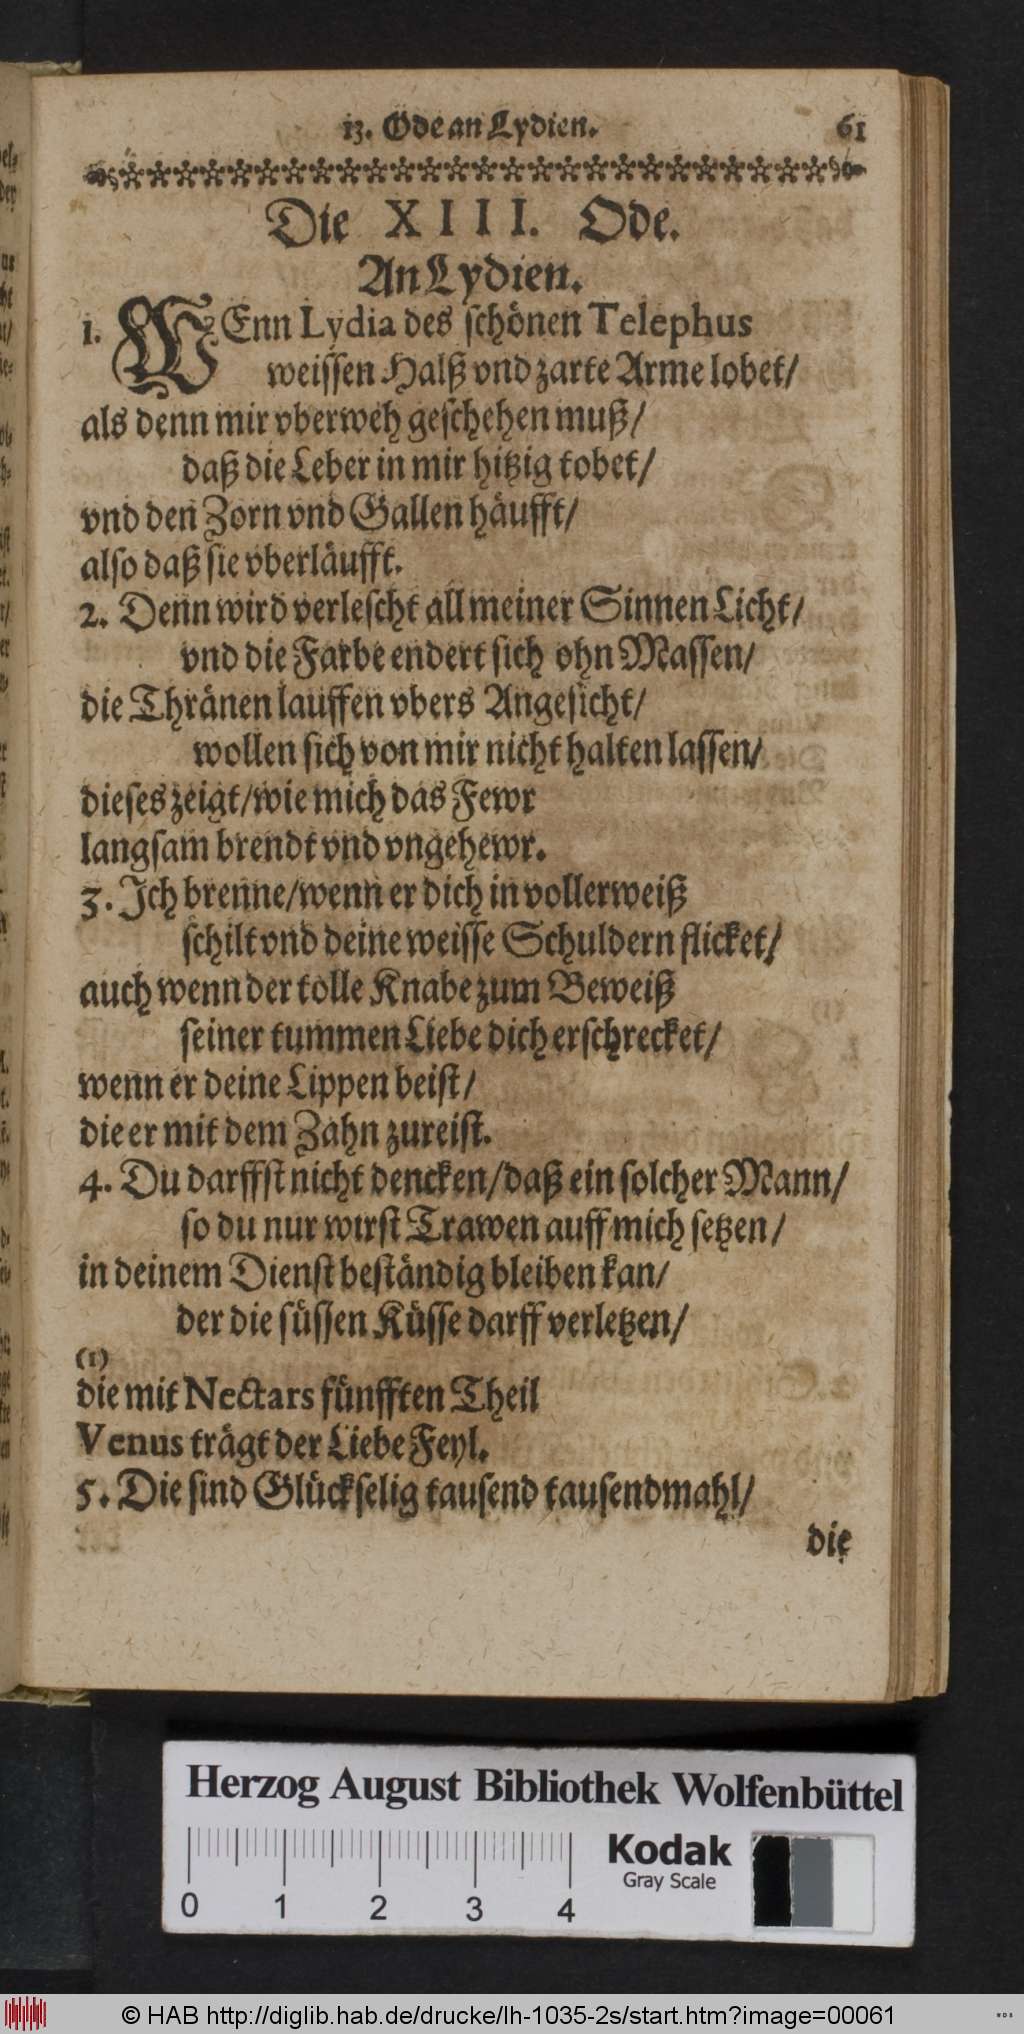 13. Ode an Lydien. 61
Die XIII. Ode.
An Lydien.
1. WEnn Lydia des schönen Telephus
weissen Halß vnd zarte Arme lobet/
als denn mir vberweh geschehen muß/
daß die Leber in mir hitzig tobet/
vnd den Zorn vnd Gallen häufft/
also daß sie vberläufft.
2. Denn wird verlescht all meiner Sinnen Licht/
vnd die Farbe endert sich ohn Massen/
die Thränen lauffen vbers Angesicht/
wollen sich von mir nicht halten lassen/
dieses zeigt/wie mich das Fewr
langsam brendt vnd vngehewr.
3. Ich brenne/wenn er dich in voller weiß
schilt vnd deine weisse Schuldern flicket/
auch wenn der tolle Knabe zum Beweiß
seiner tummen Liebe dich erschrecket/
wenn er deine Lippen beist/
die er mit dem Zahn zureist.
4. Du darffst nicht dencken/daß ein solcher Mann/
so du nur wirst Trawen auff mich setzen/
in deinem Dienst beständig bleiben kan/
der die süssen Küsse darff verletzen/
(1)
die mit Nectars fünfften Theil
Venus trägt der Liebe Feyl.
5. Die sind Glückselig tausend tausendmahl/
die
Herzog August Bibliothek Wolfenbüttel
Kodak
Gray Scale
0 1 2 3 4
© HAB http://diglib.hab.de/drucke/lh-1035-2s/start.htm?image=00061